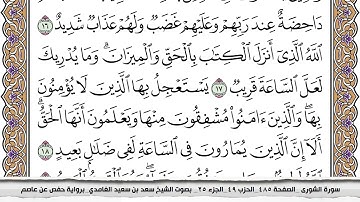 دَاحِضَةٌ عِندَ رَبِّهِمْ وَعَلَيْهِمْ غَضَبٌ وَلَهُمْ عَذَابٌ شَدِيدٌ ١٦
ٱللَّهُ ٱلَّذِىٓ أَنزَلَ ٱلْكِتَٰبَ بِٱلْحَقِّ وَٱلْمِيزَانَ ۗ وَمَا يُدْرِيكَ
لَعَلَّ ٱلسَّاعَةَ قَرِيبٌ ١٧ يَسْتَعْجِلُ بِهَا ٱلَّذِينَ لَا يُؤْمِنُونَ
بِهَا ۖ وَٱلَّذِينَ ءَامَنُوا۟ مُشْفِقُونَ مِنْهَا وَيَعْلَمُونَ أَنَّهَا ٱلْحَقُّ ۗ
أَلَآ إِنَّ ٱلَّذِينَ يُمَارُونَ فِى ٱلسَّاعَةِ لَفِى ضَلَٰلٍۭ بَعِيدٍ ١٨
سورة الشورى _ الصفحة ٤٨٥ _ الحزب ٤٩ _ الجزء ٢٥ _ بصوت الشيخ سعد بن سعيد الغامدي _ برواية حفص عن عاصم